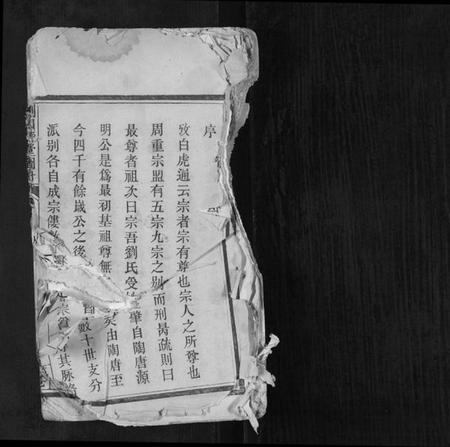 序
攷白虎通云宗者宗有尊也宗人之所尊也
周重宗盟有五宗九宗之别而刑昺疏則曰
最尊者祖次曰宗吾劉氏受 肇自陶唐源
明公是爲最初基祖尊無 矣由陶唐至
今四千有餘歲公之後 數十世支分
派别各自成宗僂 宗 其脉